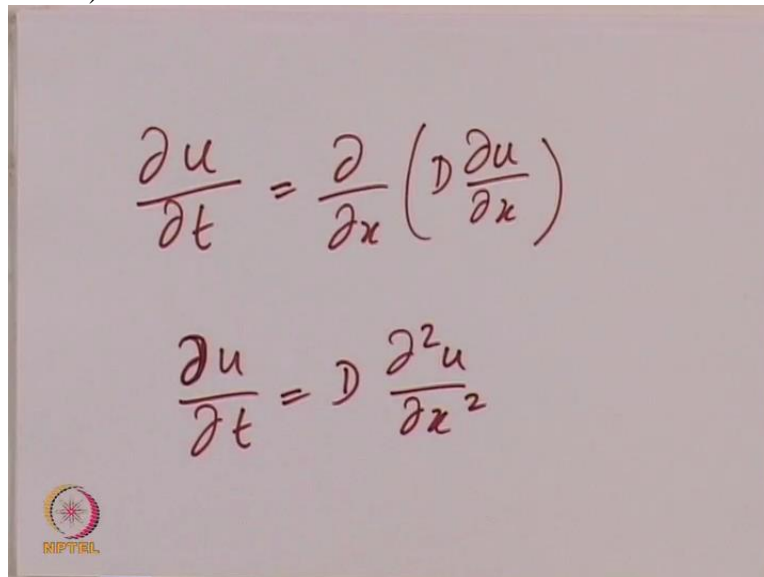 ∂u/∂t = ∂/∂x (D ∂u/∂x)
∂u/∂t = D ∂²u/∂x²
NPTEL